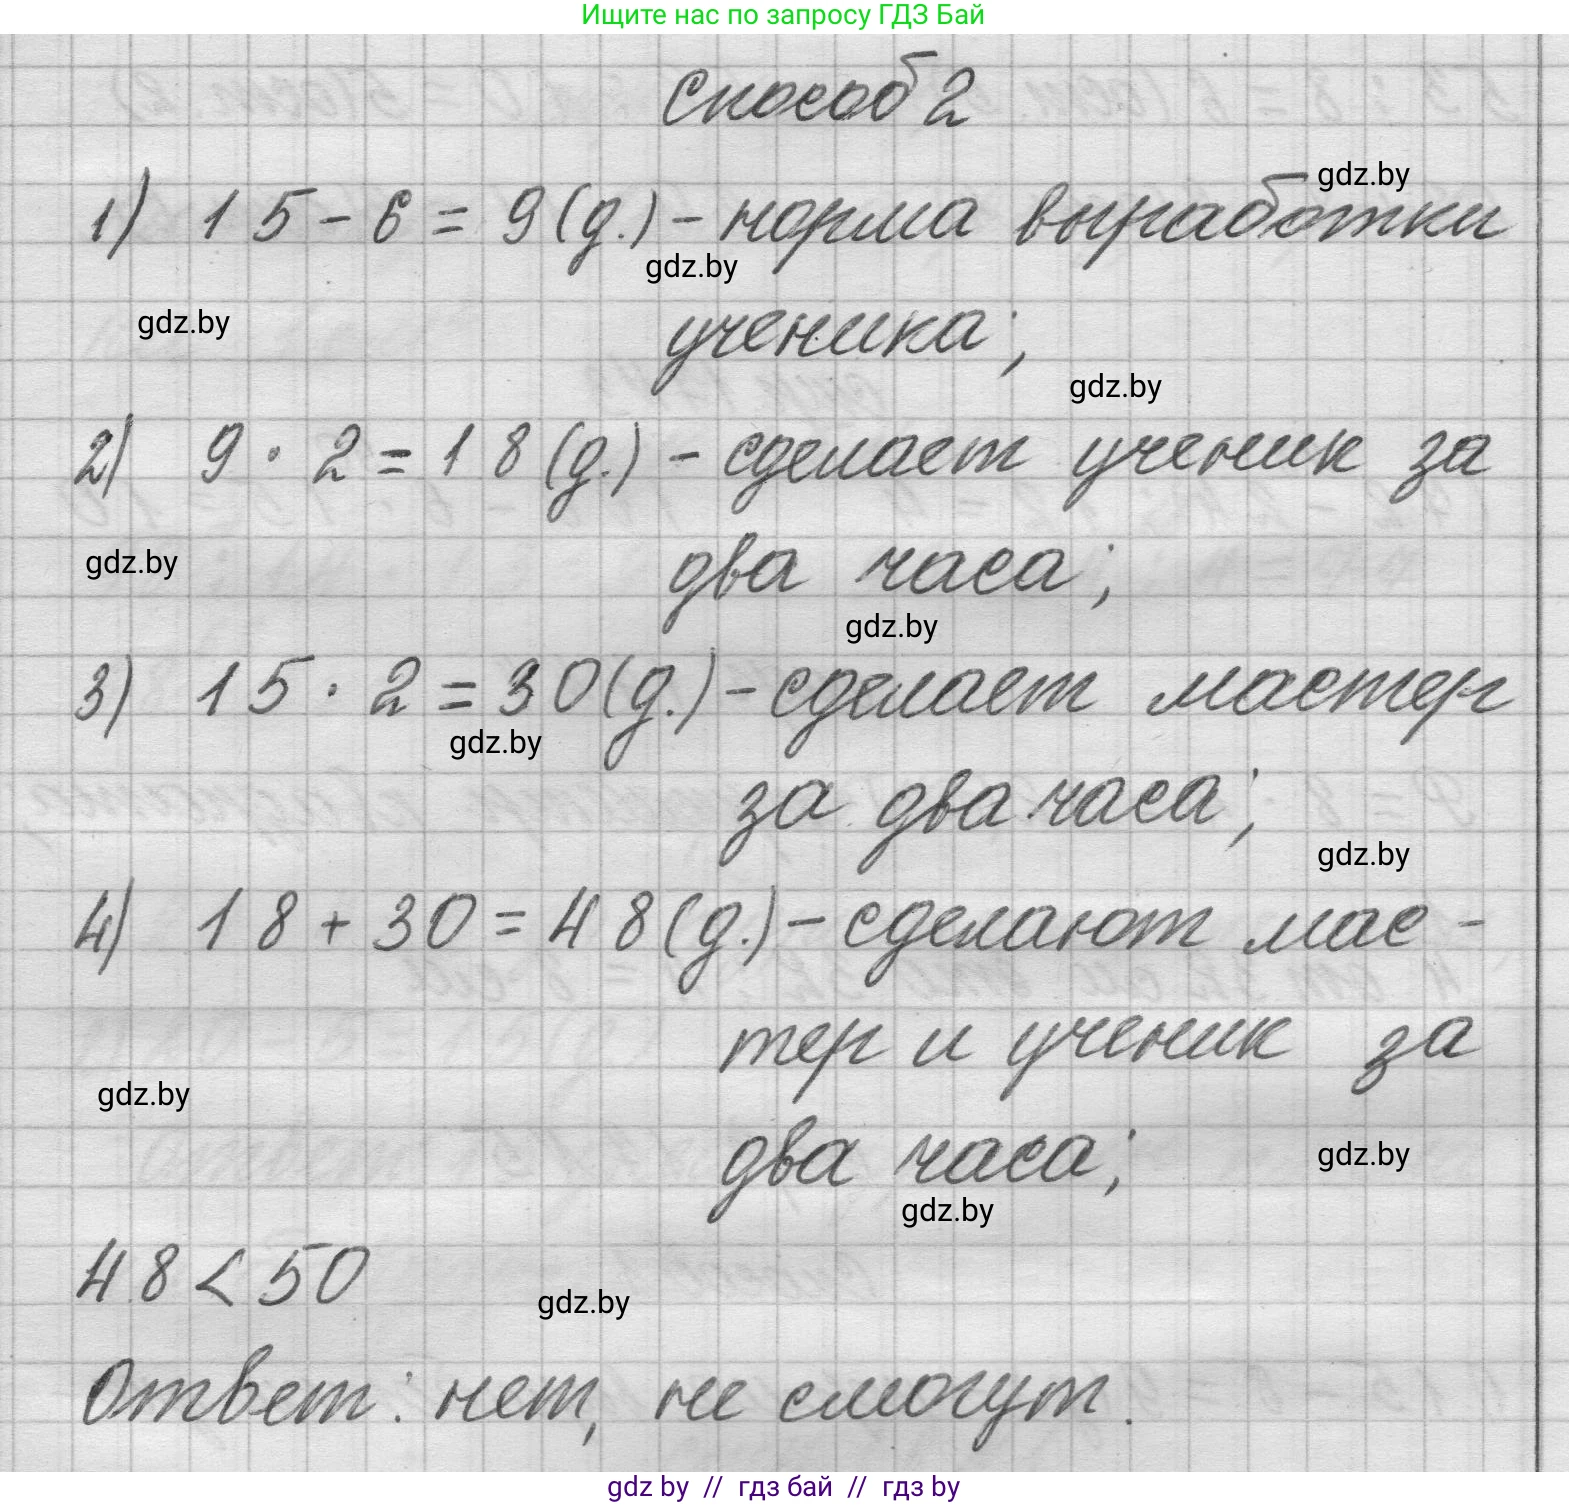 Ищите нас по запросу ГДЗ Бай
Способ 2
gdz.by
1) 15 - 6 = 9 (д.) - норма выработки
gdz.by
gdz.by
ученика;
gdz.by
2) 9 · 2 = 18 (д.) - сделает ученик за
gdz.by
два часа;
gdz.by
3) 15 · 2 = 30 (д.) - сделает мастер
gdz.by
за два часа;
gdz.by
4) 18 + 30 = 48 (д.) - сделают мас -
тер и ученик за
gdz.by
два часа;
gdz.by
gdz.by
48 < 50
gdz.by
Ответ: нет, не смогут.
gdz by // гдз бай // гдз by